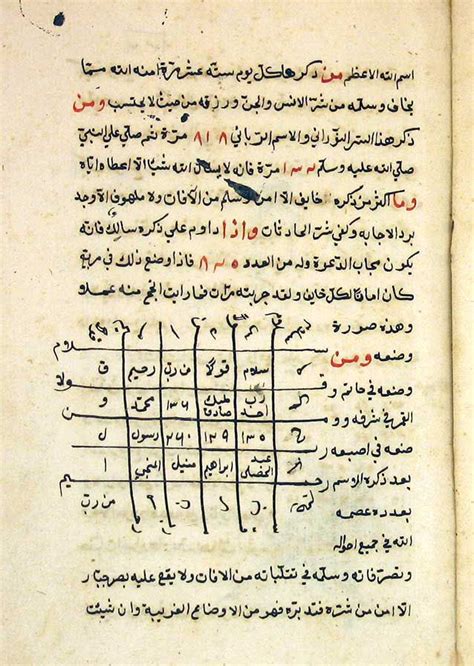 اسم الله الاعظم من ذكرها كل يوم ستة عشر مرة امنه الله مما
يخاف وسلمه من شر الانس والجن ورزقه من حيث لا يحتسب ومن
ذكر هذا السر النوراني والاسم الرباني ٨١٨ مرة ثم صلي علي النبي
صلي الله عليه وسلم مرة فانه لا يسال الله شيا الا اعطاه اياه
وما اكثر من ذكره خايف الا امن وسلم من الافات ولا ملهوف الا وجد
برد الاجابه وكفي شر الحادثات واذا داوم علي ذكره سالك فانه
يكون مجاب الدعوة وله من العدد فاذا وضع ذلك في مربع
كان امانا لكل خايف ولقد جربته مرات فما رايت انجح منه عملا و
وهذه صورة
وضعه ومن سلام قولا من رب رحيم
وضعه في خاتم و رب احد صادق ١٣٦ محمد
القمر في شرفه وو ١٣٥ ١٣٩ ٢٦٠ رسول
ضعه في اصبعه عبد ابراهيم منيل المنجي
بعد ذكره الاسم
بعدده عصمه من رب
الله في جميع احواله
وتصرفاته وسلمه في تقلباته من الافات ولا يقع عليه بصر جبار
الا امن من شره فتدبره فهو من الاوضاع الغريبة وان شيت